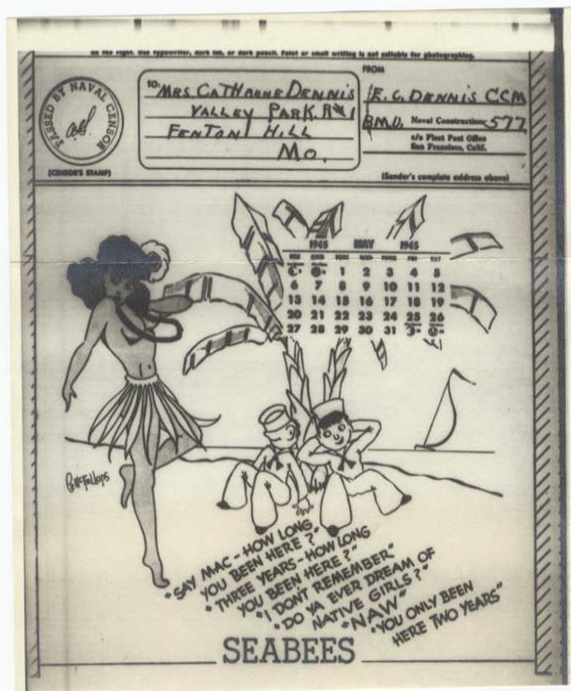 on the right. Use typewriter, dark ink, or dark pencil. Faint or small writing is not suitable for photographing.
PASSED BY NAVAL CENSOR
(CENSOR'S STAMP)
TO:
MRS. CATHARNE DENNIS
VALLEY PARK. R#1
FENTON HILL
MO.
FROM
E. C. DENNIS CCM
B.M.U. Naval Construction 577
c/o Fleet Post Office
San Francisco, Calif.
(Sender's complete address above)
1945 MAY 1945
1 2 3 4 5
6 7 8 9 10 11 12
13 14 15 16 17 18 19
20 21 22 23 24 25 26
27 28 29 30 31
"SAY MAC - HOW LONG
YOU BEEN HERE?"
"THREE YEARS - HOW LONG
YOU BEEN HERE?"
"I DONT REMEMBER"
"DO YA EVER DREAM OF
NATIVE GIRLS?"
"NAW"
"YOU ONLY BEEN
HERE TWO YEARS"
SEABEES